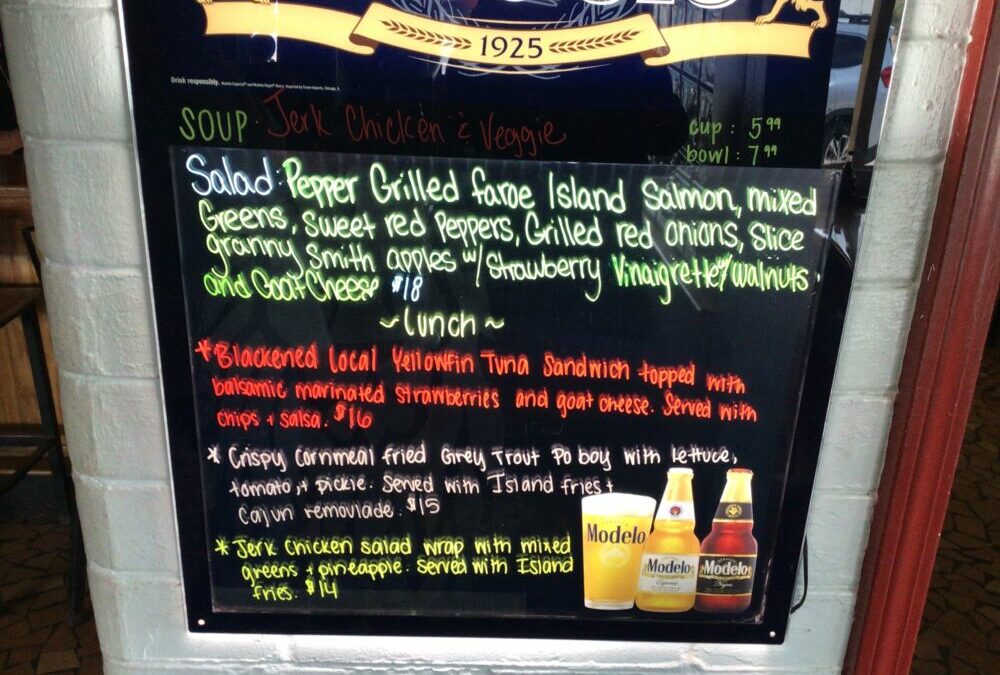 1925
Drink responsibly.
SOUP. Jerk Chicken & Veggie
cup: 5.99
bowl: 7.99
Salad: Pepper Grilled faroe Island Salmon, mixed
Greens, sweet red Peppers, Grilled red onions, slice
granny Smith apples w/ strawberry Vinaigrette w/ walnuts
and Goat Cheese $18
~ Lunch ~
* Blackened Local Yellowfin Tuna Sandwich topped with
balsamic marinated strawberries and goat cheese. Served with
chips + salsa. $16
* Crispy Cornmeal fried Grey Trout Po boy with Lettuce,
tomato, + pickle. Served with Island fries +
Cajun remoulade. $15
* Jerk Chicken salad wrap with mixed
greens + pineapple. Served with Island
fries. $14
Modelo
Modelo
Especial
Modelo
Negra